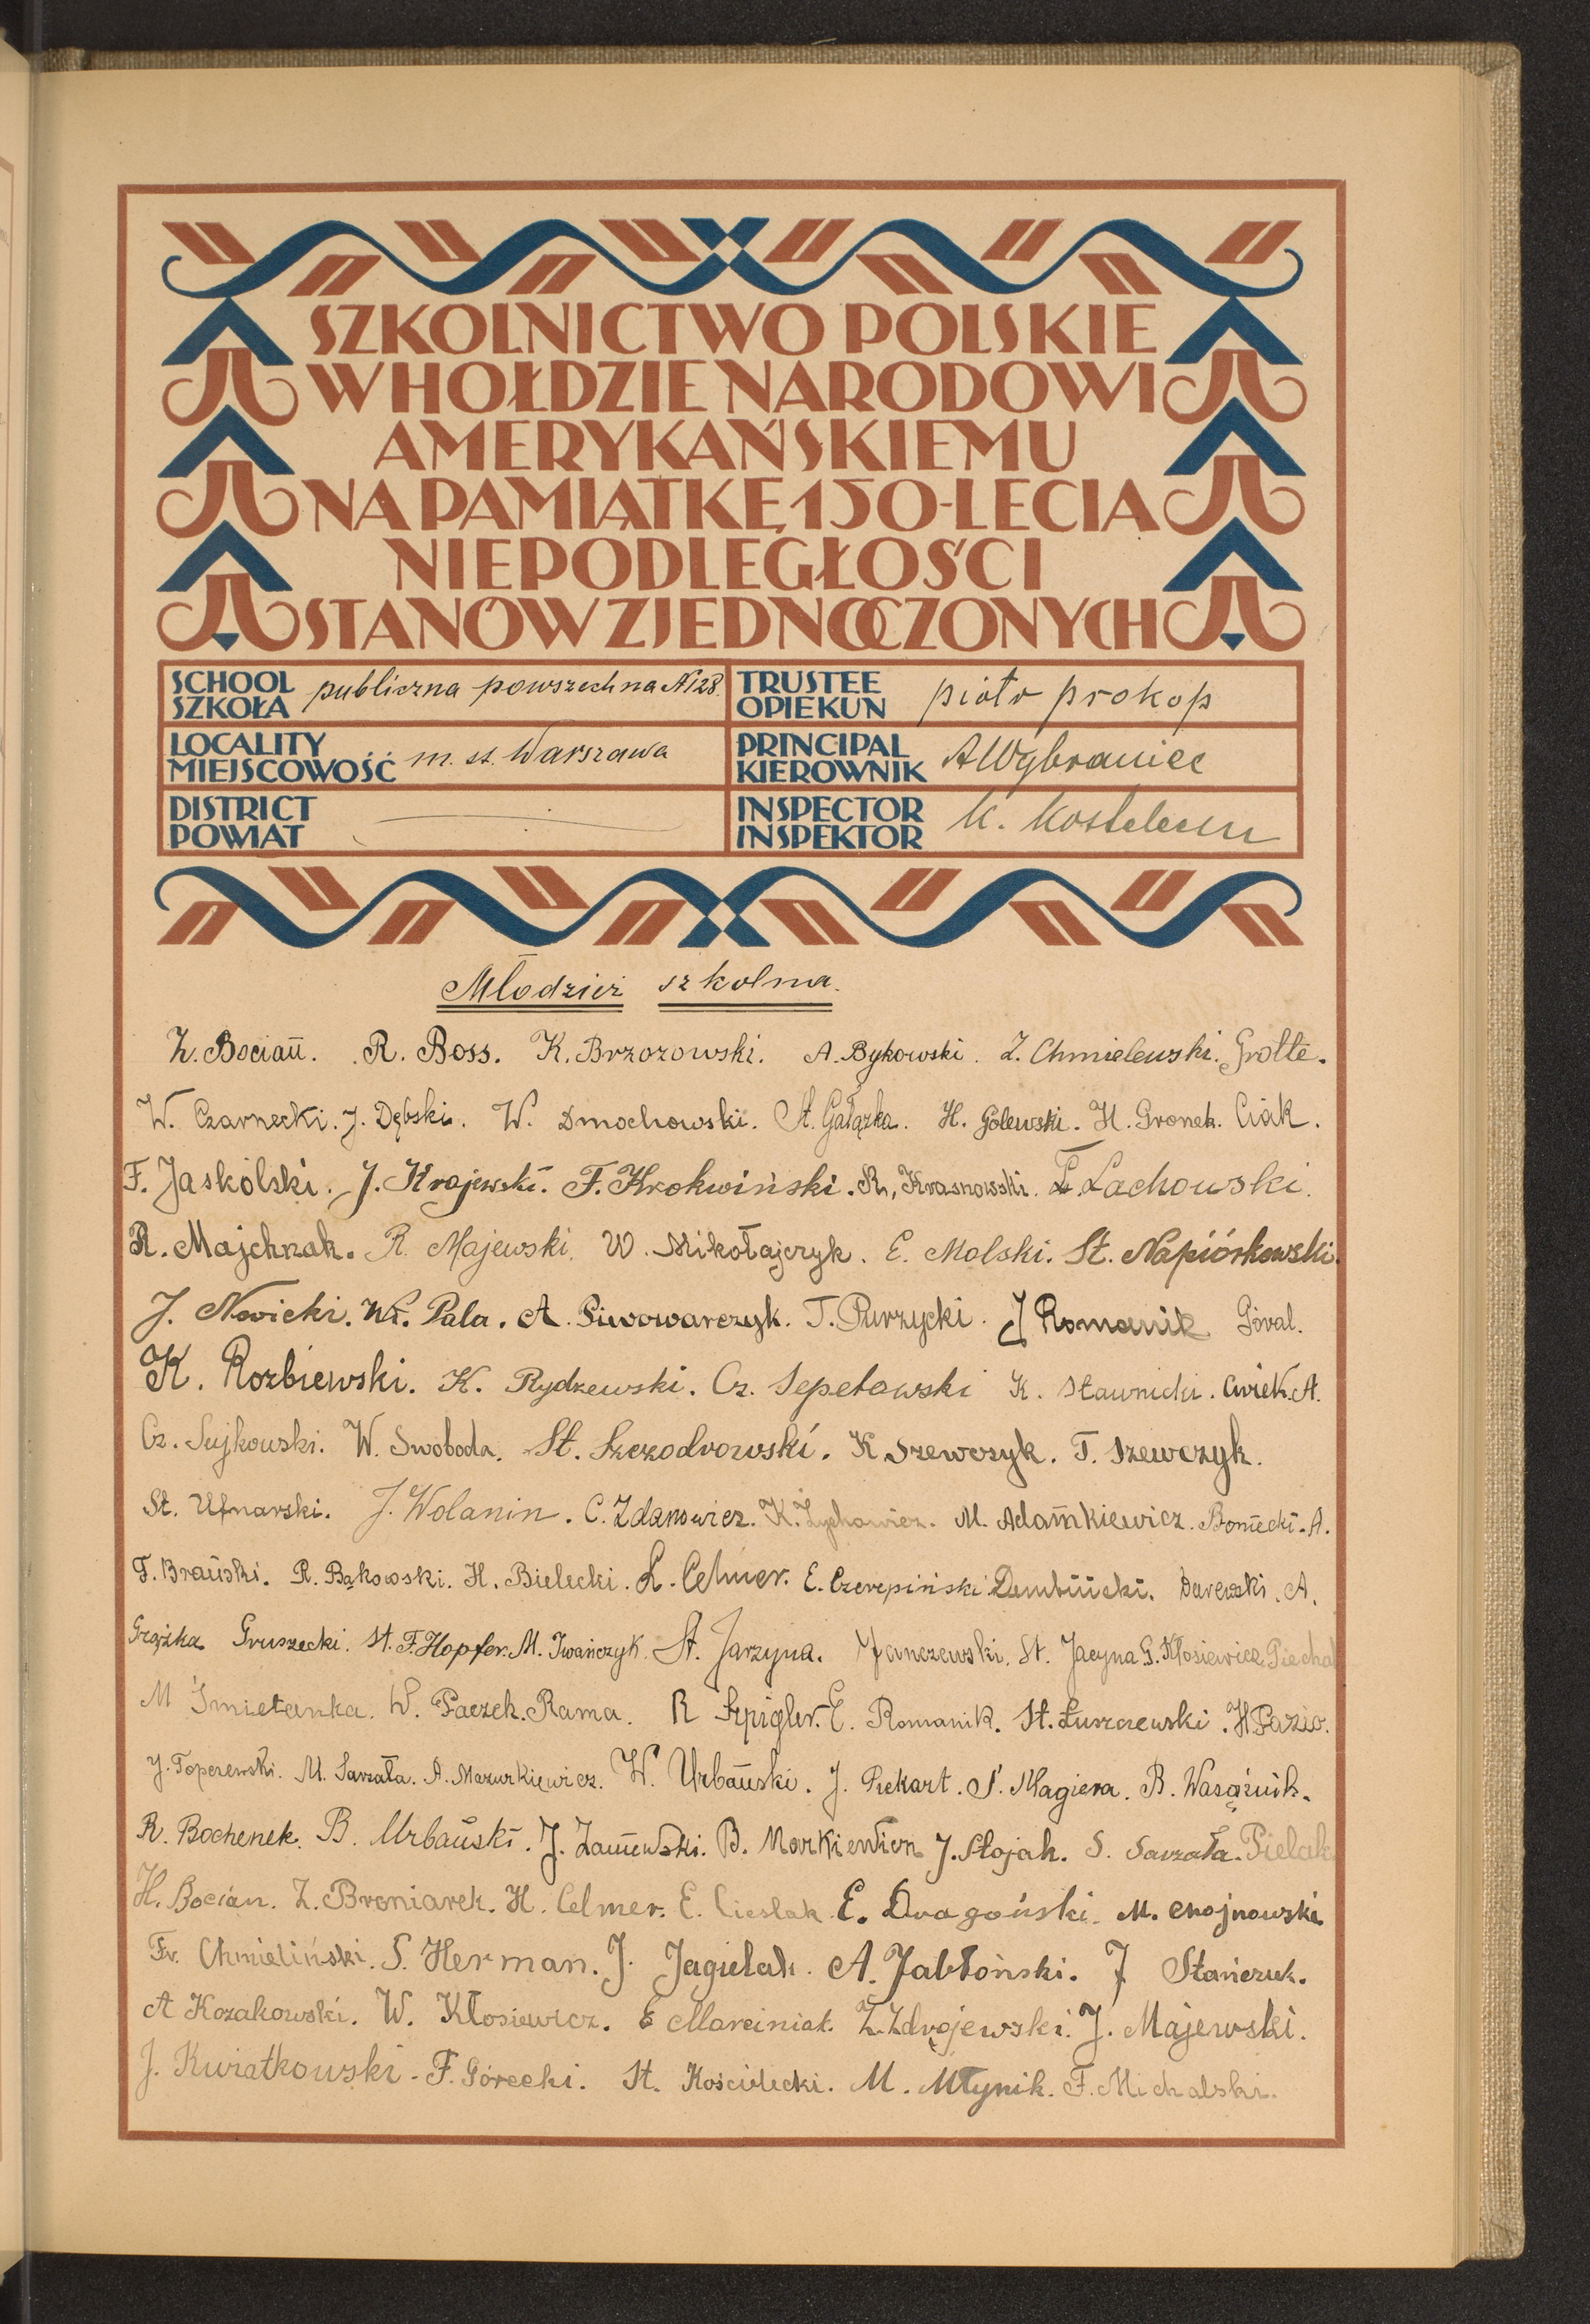 SZKOLNICTWO POLSKIE
W HOŁDZIE NARODOWI
AMERYKAŃSKIEMU
NA PAMIĄTKĘ 150-LECIA
NIEPODLEGŁOŚCI
STANÓW ZJEDNOCZONYCH
SCHOOL SZKOŁA publiczna powszechna №128.
TRUSTEE OPIEKUN piotr prokop
LOCALITY MIEJSCOWOŚĆ m. st. Warszawa
PRINCIPAL KIEROWNIK A Wybraniec
DISTRICT POWIAT
INSPECTOR INSPEKTOR K.
Młodzież szkolna.
Z. Bociań. R. Boss. K. Brzozowski. A. Bykowski. Z. Chmielewski. Grotte.
W. Czarnecki. J. Dębski. W. Dmochowski. A. Gałązka. H. Golewski. H. Gronek. Ciak.
F. Jaskólski. J. Krajewski. F. Krokwiński. R. Krasnowski. F. Lachowski.
R. Majchrzak. R. Majewski. W. Mikołajczyk. E. Molski. St. Napiórkowski.
J. Nowicki. Wł. Pala. A. Piwowarczyk. T. Purzycki. J Romanik Góral.
K. Rozbiewski. K. Rydzewski. Cz. Sepetowski K. Sławnicki. Ćwiek. A.
Cz. Sujkowski. W. Swoboda. St. Szczodrowski. K Szewczyk. T. Szewczyk.
St. Ufnarski. J. Wolanin. C. Zdanowicz. K. Żychowicz. M. Adamkiewicz. Boniecki. A.
F. Brański. R. Bąkowski. H. Bielecki. L. Celmer. E. Czerepiński Dembiński. Darewski. A.
Grążka Gruszecki. St. F. Hopfer. M. Iwańczyk. St. Jarzyna. Janczewski. St. Jacyna G. Kłosiewicz
M Śmietanka. W. Pączek. Rama. R Szpigler. E. Romanik. St. Łuszczewski. H Pazio.
J. Toperzewski. M. Sarzała. A. Mazurkiewicz. W. Urbański. J. Piekart. S. Magiera. B. Wasążnik.
R. Bochenek. B. Urbański. J. Zaniewski. B. Markiewicz J. Stojak. S. Sarzała. Pielak
H. Bocian. Z. Broniarek. H. Celmer. E. Cieslak E. Dragoński. M. Chojnowski
Fr. Chmieliński. S. Herman. J. Jagielak. A. Jabłoński. J Stańczuk.
A Kozakowski. W. Kłosiewicz. E Marciniak. Z. Zdrojewski. J. Majewski.
J. Kwiatkowski. F. Górecki. St. Kościelecki. M. Młynik. F. Michalski.